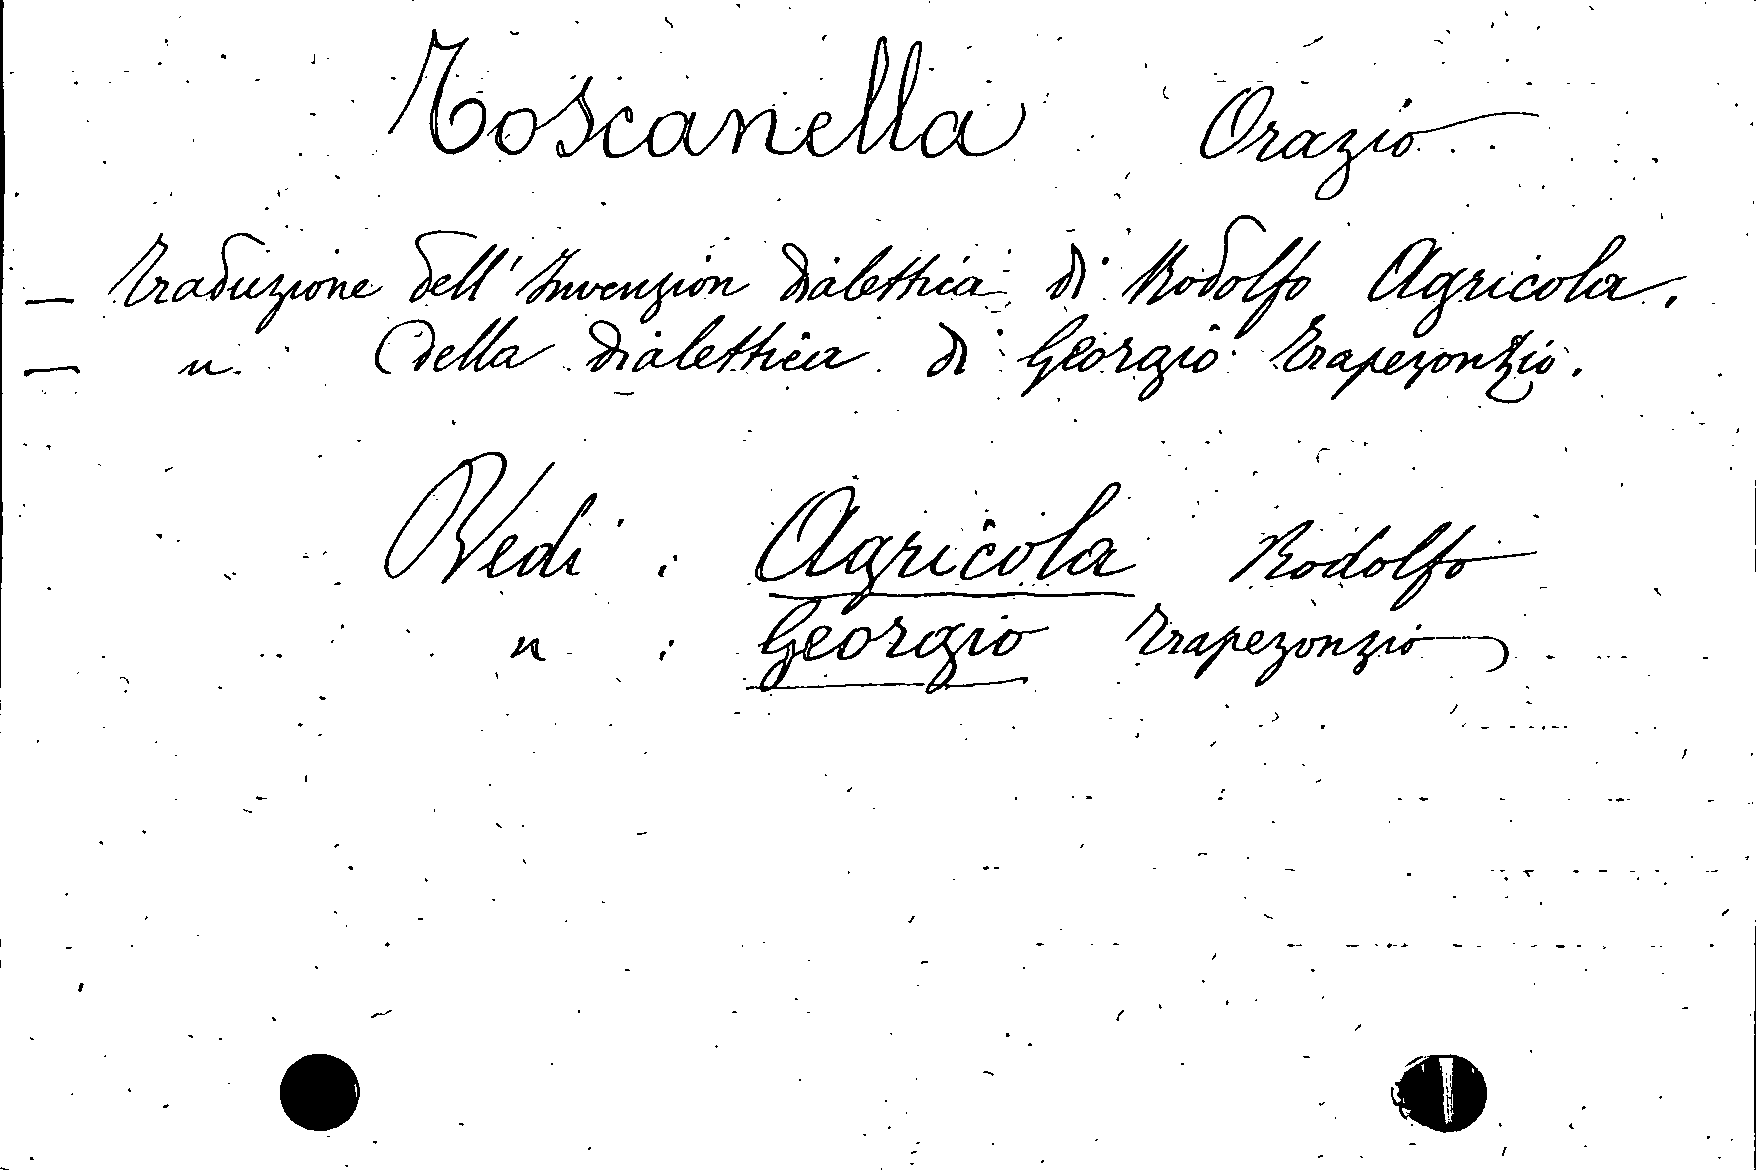 Toscanella Orazio
— Traduzione dell'Invenzion dialettica di Rodolfo Agricola.
— " Della dialettica di Georgio Trapezonzio.
Vedi : Agricola Rodolfo
" : Georgio Trapezonzio